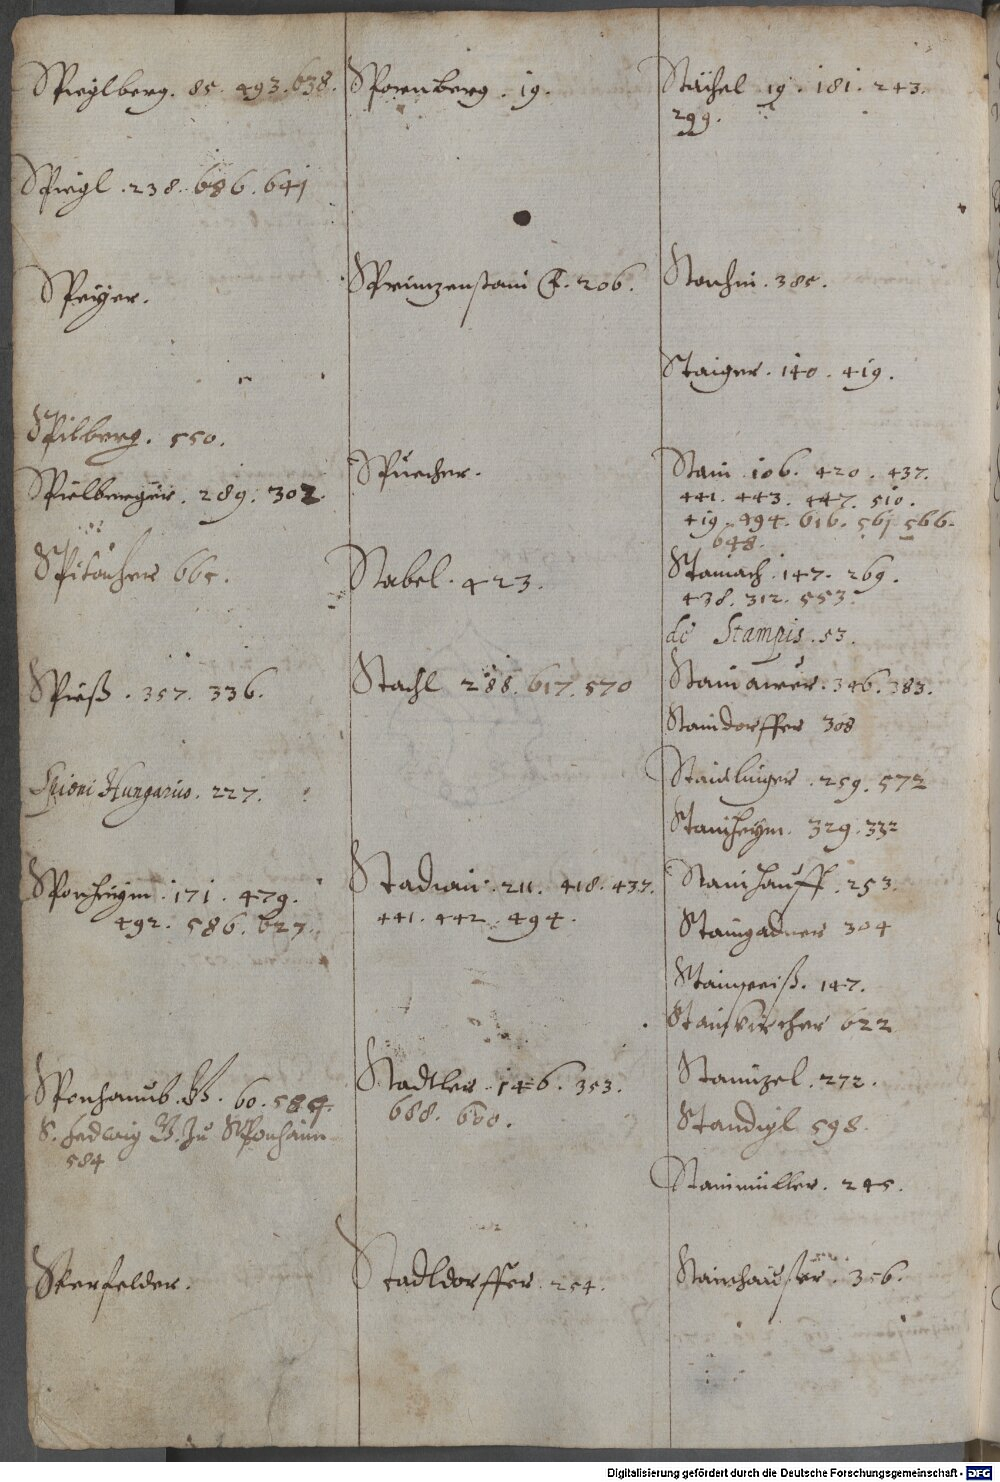 Spieglberg. 85. 493. 638.
Spiegl. 238. 686. 641
Speyer.
Spilberg. 550.
Spielberger. 289. 302.
665.
Spieß. 357. 336.
Hungarico. 227.
Sponheym. 171. 479.
492. 586. 627.
60. 584.
S. Hedwig zu
584
Sperfelder.
Sporenberg. 19.
Sprinzenstain 206.
Spuecher.
Stabel. 423.
Stachl 288. 617. 570
Stadian. 211. 418. 437.
441. 442. 494.
Stadtler. 146. 353.
668. 660.
Stadldorffer. 254.
Stähel 19. 181. 243.
299.
385.
Staiger. 140. 419.
Stain. 106. 420. 437.
441. 443. 447. 510.
419. 494. 616. 561. 566.
648.
Stainach. 147. 269.
438. 312. 553.
de Stampis. 53.
Stainawer. 346. 383.
Staindorffer 308
Staidlinger. 259. 572
Stainheym. 329. 332
Stainhauff. 253.
Staingadner 304
Stainreiß. 147.
Stainkircher 622
Stainzel. 272.
Standigl 598
Stainmüller. 245.
356.
Digitalisierung gefördert durch die Deutsche Forschungsgemeinschaft - DFG